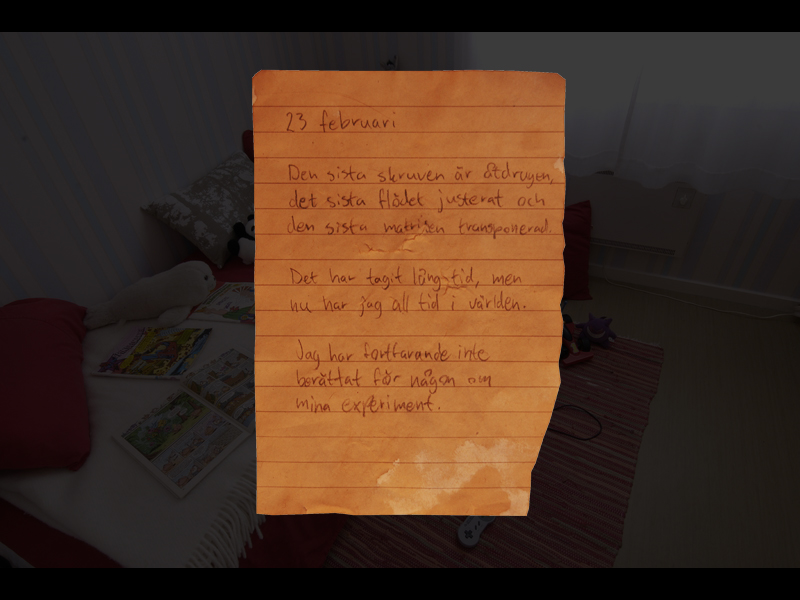 23 februari
Den sista skruven är åtdragen,
det sista flödet justerat och
den sista matrisen transponerad.
Det har tagit lång tid, men
nu har jag all tid i världen.
Jag har fortfarande inte
berättat för någon om
mina experiment.